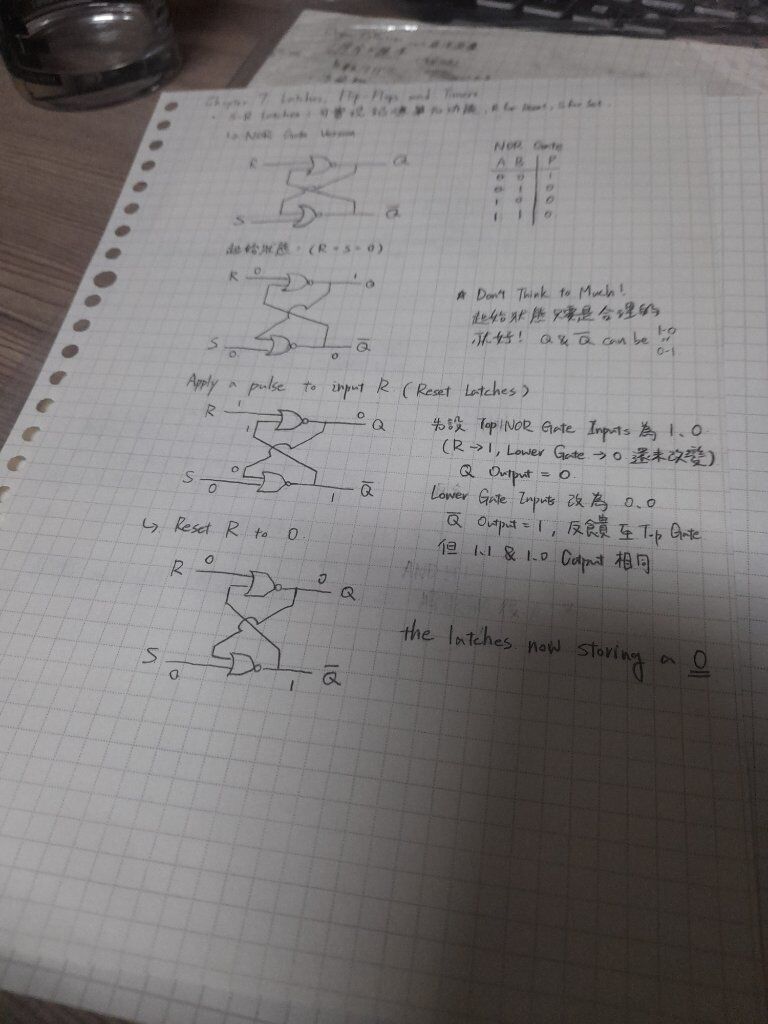 Chapter 7 Latches, Flip-Flops and Timers
• S-R Latches: 可實現記憶單元功能, R for Reset, S for Set.
↳ NOR Gate Version
R Q
S Q̅
NOR Gate
A B P
0 0 1
0 1 0
1 0 0
1 1 0
起始狀態: (R = S = 0)
R 0 1 Q
S 0 0 Q̅
* Don't Think to Much!
起始狀態只要是合理的
就好! Q & Q̅ can be 1-0
or
0-1
Apply a pulse to input R (Reset Latches)
R 1 0 Q
1
0
S 0 1 Q̅
先設 Top NOR Gate Inputs 為 1、0
(R → 1, Lower Gate → 0 還未改變)
Q Output = 0
Lower Gate Inputs 改為 0、0
Q̅ Output = 1, 反饋至 Top Gate
但 1、1 & 1、0 Output 相同
↳ Reset R to 0
R 0 0 Q
S 0 1 Q̅
the latches now storing a 0